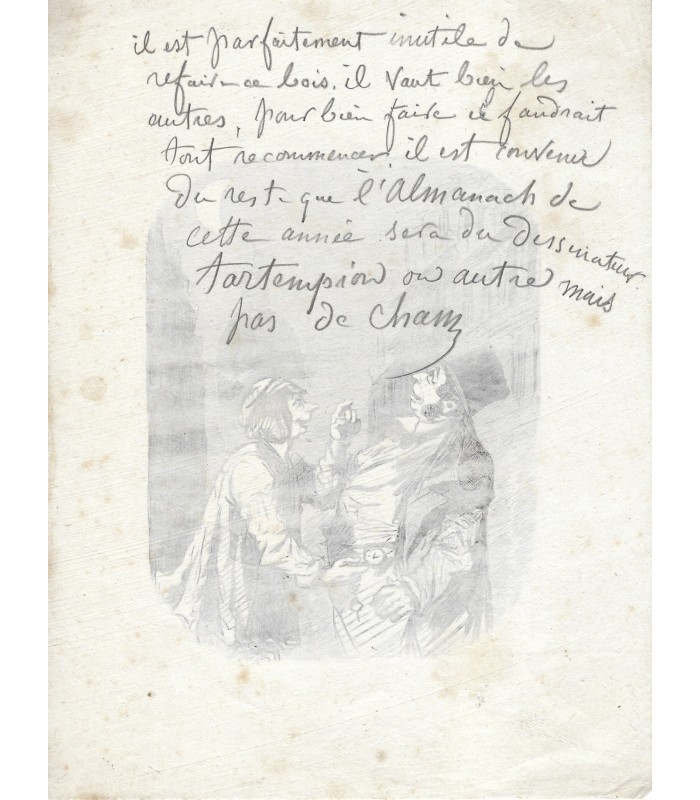 il est parfaitement inutile de
refaire ce bois. il vaut bien les
autres, pour bien faire il faudrait
tout recommencer. il est convenu
du reste que l'Almanach de
cette année sera du dessinateur
tartempion ou autre mais
pas de Cham